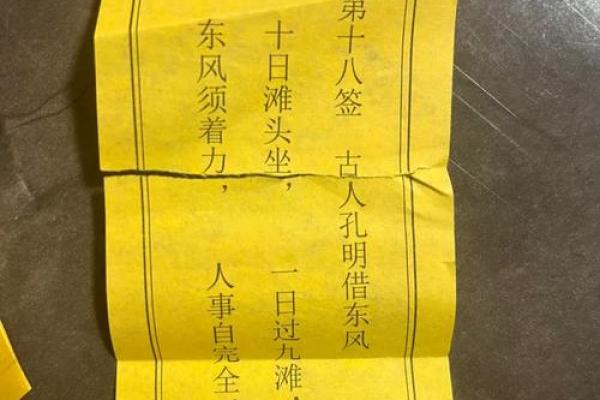 第十八签 古人孔明借东风
十日滩头坐， 一日过九滩，
东风须着力， 人事自完全